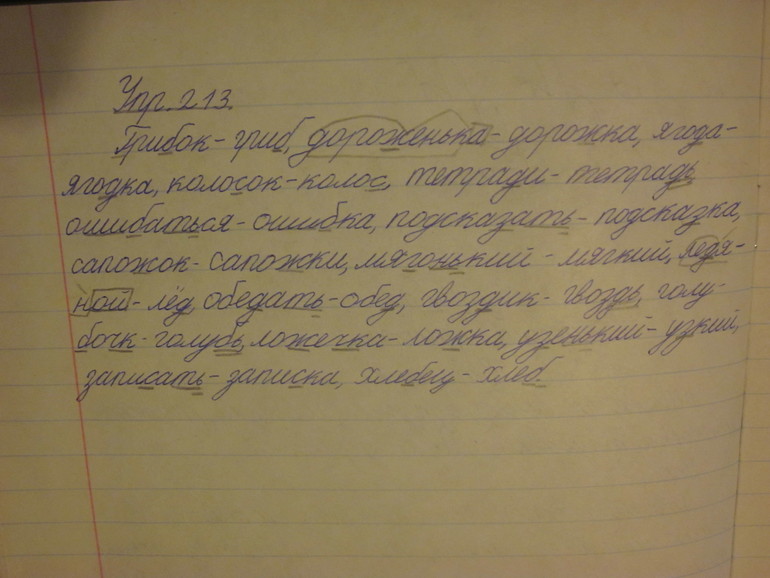 Упр. 213.
Грибок - гриб, дороженька - дорожка, ягода -
ягодка, колосок - колос, тетради - тетрадь
ошибаться - ошибка, подсказать - подсказка,
сапожок - сапожки, мягонький - мягкий, ледя-
ной - лёд, обедать - обед, гвоздик - гвоздь, голу-
бочк - голубь, ложечка - ложка, узенький - узкий,
записать - записка, хлебец - хлеб.